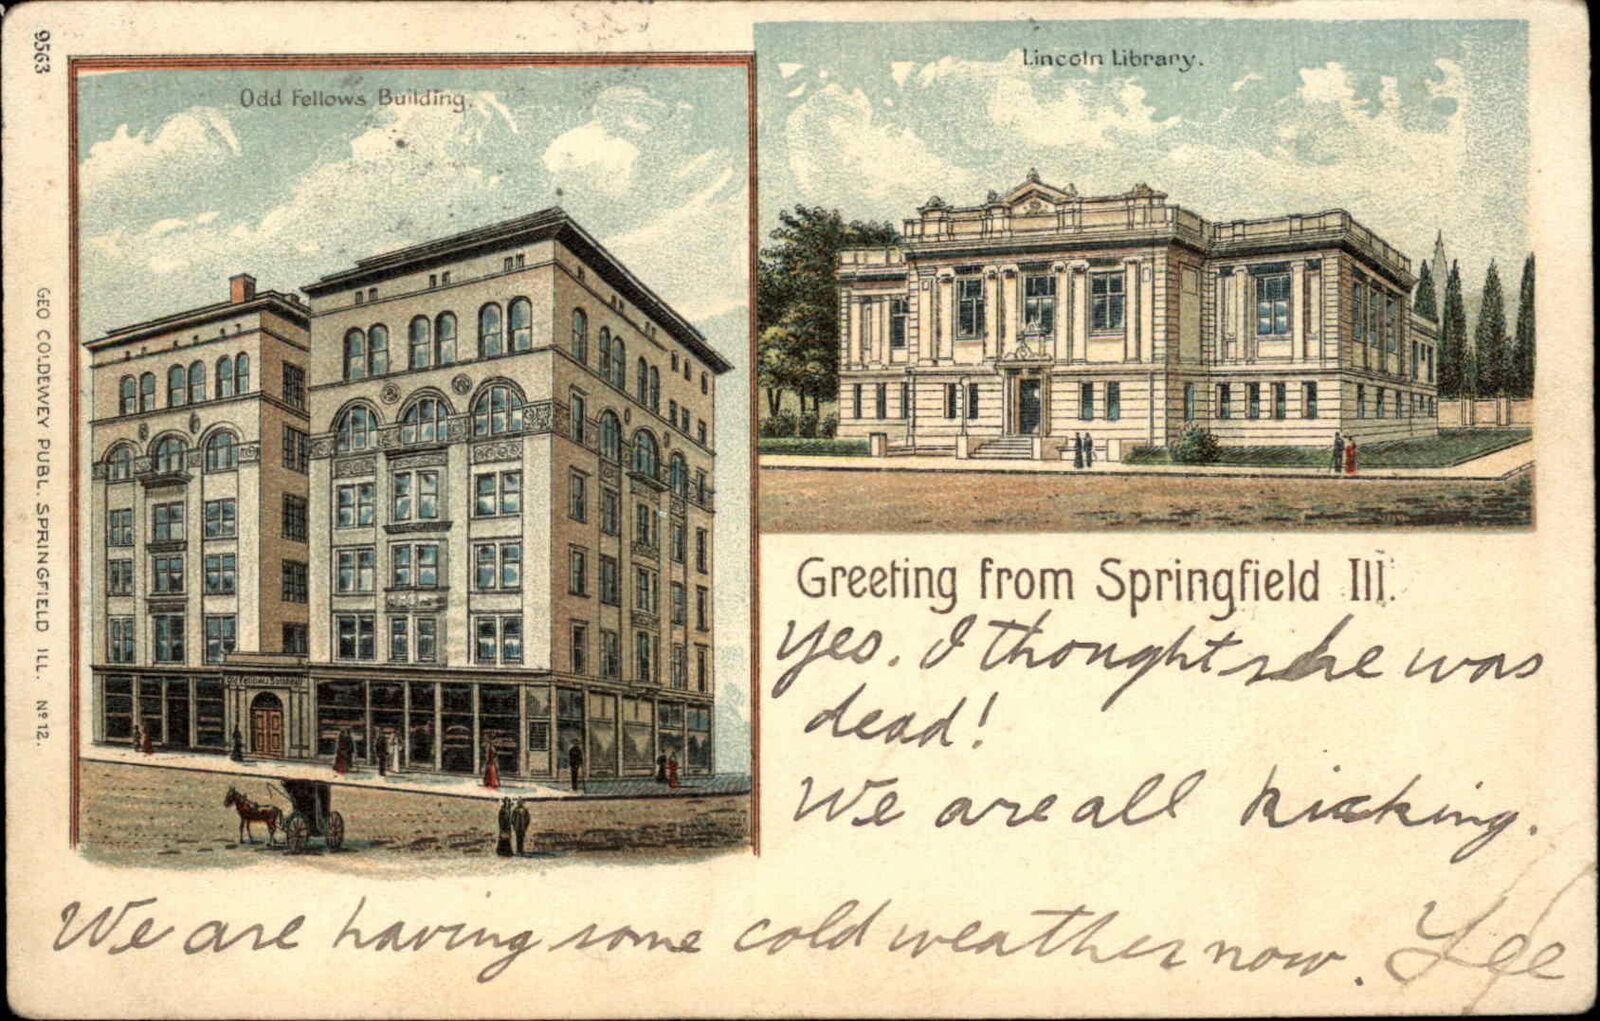 9563
Odd Fellows Building.
Lincoln Library.
GEO COLDEWEY PUBL. SPRINGFIELD ILL. Nº 12.
Odd Fellows Building
Greeting from Springfield Ill.
Yes. I thought she was
dead!
We are all kicking.
We are having some cold weather now. Lee